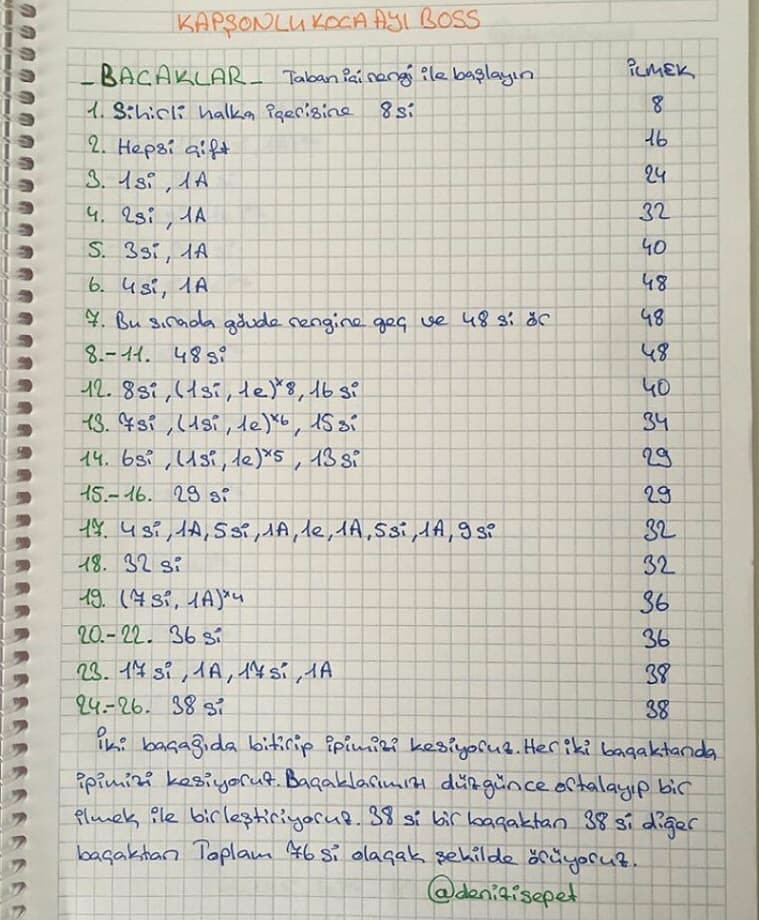 KAPŞONLU KOCA AYI BOSS
- BACAKLAR - Taban içi rengi ile başlayın İLMEK
1. Sihirli halka içerisine 8si 8
2. Hepsi çift 16
3. 1si, 1A 24
4. 2si, 1A 32
5. 3si, 1A 40
6. 4si, 1A 48
7. Bu sırada gövde rengine geç ve 48 si ör 48
8.-11. 48 si 48
12. 8si, (1si, 1e)×8, 16 si 40
13. 7si, (1si, 1e)×6, 15si 34
14. 6si, (1si, 1e)×5, 13si 29
15.-16. 29 si 29
17. 4si, 1A, 5si, 1A, 1e, 1A, 5si, 1A, 9si 32
18. 32 si 32
19. (7si, 1A)×4 36
20.-22. 36 si 36
23. 17si, 1A, 17si, 1A 38
24.-26. 38 si 38
İki bacağıda bitirip ipimizi kesiyoruz. Her iki bacaktanda
ipimizi kesiyoruz. Bacaklarımızı düzgünce ortalayıp bir
ilmek ile birleştiriyoruz. 38 si bir bacaktan 38 si diğer
bacaktan Toplam 76 si olacak şekilde örüyoruz.
@denizisepet